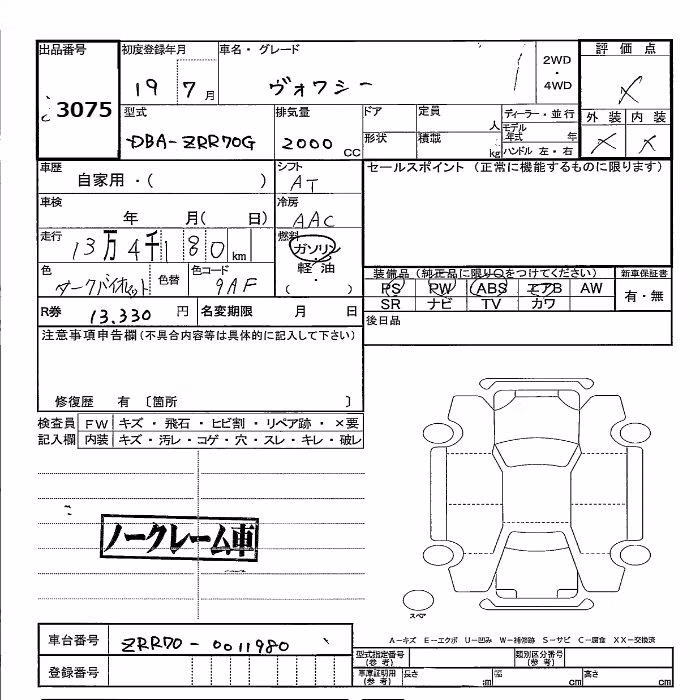 出品番号 3075
初度登録年月 19 7月
車名・グレード ヴォクシー
2WD ・ 4WD
評価点 X
外装 内装
X X
型式 DBA-ZRR70G
排気量 2000 CC
ドア 定員 人
形状 積載 kg
ディーラー・並行
モデル年式 年
ハンドル 左・右
車歴 自家用・( )
シフト AT
セールスポイント (正常に機能するものに限ります)
車検 年 月( 日)
冷房 AAC
走行 13万4千180km
燃料 ガソリン・軽油・( )
色 ダークバイオレット 色替 色コード 9AF
装備品 (純正品に限り○をつけてください) 新車保証書
PS PW ABS エアB AW 有・無
SR ナビ TV カワ
R券 13,330円 名変期限 月 日
後日品
注意事項申告欄(不具合内容等は具体的に記入して下さい)
修復歴 有 〔箇所 〕
検査員記入欄
FW キズ・飛石・ヒビ割・リペア跡・×要
内装 キズ・汚レ・コゲ・穴・スレ・キレ・破レ
ノークレーム車
スペア
A-キズ E-エクボ U-凹み W-補修跡 S-サビ C-腐食 XX-交換済
車台番号 ZRR70-0011980
登録番号
型式指定番号(参考) 類別区分番号(参考)
車庫証明用(参考) 長さ cm 幅 cm 高さ cm